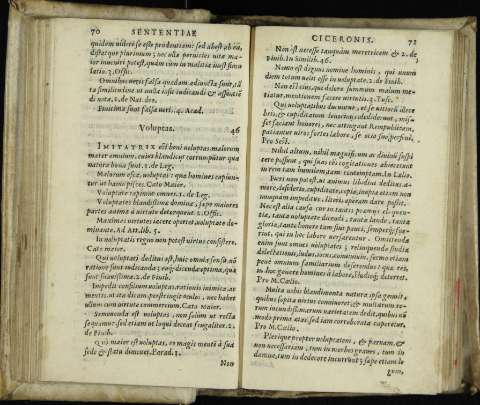 70 SENTENTIAE
quidem videre se esse prudentiam: sed abest ab ea,
distatque plurimum; nec ulla pernicies vitae
maior inveniri potest, quàm cum in malitia inest simu-
latio. 3. Offic.
Omnibus veris falsa quaedam adiuncta sunt,
ta similitudine ut nulla insit iudicandi & assentie
di nota. 1. de Nat. deo.
Finitima sunt falsa veri. 4. Acad.
Voluptas. 46
IMITATRIX est boni voluptas, malorum
mater omnium. cuius blandiciis corrumpuntur quae
natura bona sunt. 1. de Leg.
Malorum esca, voluptas: qua homines capiun-
tur ut hamo pisces. Cato Maior.
Voluptate capimur omnes. 1. de Leg.
Voluptates blandissimae dominae, saepe maiores
partes animi à virtute detorquent. 2. Offic.
Maximas virtutes iacere oportet, voluptate do-
minante. Ad Att. lib. 5.
In voluptatis regno non potest virtus consistere.
Cato maior.
Qui voluptati dediti sunt, huic omnia sensu non
ratione sunt iudicanda; eaque dicenda optima, quae
sunt suavissima. 2. de Finib.
Impedit consilium voluptas, rationi inimica, ac
mentis, ut ita dicam, perstringit oculos, nec habet
ullum cum virtute commercium. Cato Maior.
Semovenda est voluptas, non solum ut recta
sequamur, sed etiam ut loqui deceat frugaliter. 2.
de Finib.
Qui maior est voluptas, eo magis mentē à sua
sede & statu dimovet. Parad. 1.
Non
CICERONIS. 71
Non est necesse tanquam meretricem & 2. de
Finib. In Similib. 46.
Nemo est dignus nomine hominis, qui unum
diem totum velit esse in voluptate. 2. de Finib.
Non est eius, qui dolore summum malum me-
tiatur, mentionem facere virtutis. 3. Tusc.
Qui voluptatibus ducuntur, et se vitiorū illece-
bris, & cupiditatum lenociniis dediderunt, mis-
sos faciant honores, nec attingant Rempublicam,
patiantur viros fortes labore, se otio suo perfrui.
Pro Sest.
Nihil altum, nihil magnificum ac divinū suspi-
cere possunt, qui suas oēs cogitationes abiecerunt
in rem tam humilem, tam contemptam. In Lalio.
Fieri non potest, ut animus libidini deditus, a-
more, desiderio, cupiditate, copia, inopia etiam non
nunquam impeditus, literis operam dare possit.
Nec est alia causa cur in tantis praemiis eloquen-
tiae, tanta voluptate dicendi, tanta laude, tanta
gloria, tanto honore tam sint pauci, semperque fue-
rint, qui in hoc labore versarentur. Omittendae
enim sunt omnes voluptates; relinquenda studia
delectationis, ludus, iocus, convivium, sermo etiam
penè omnium familiarium deserendus: quae res,
in hoc genere homines à labore, studioque deterret.
Pro M. Caelio.
Multa nobis blandimenta natura ipsa genuit,
quibus sopita virtus conniveret & multarum re-
rum iucundissimarum varietatem dedit, quibus nō
modo prima aetas, sed iam corroborata caperetur.
Pro M. Caelio.
Plerique propter voluptatem, & parvam, &
non necessariam, tum in morbos graves, tum in
damna, tum in dedecore incurrūt; saepe etiam le-
gum,